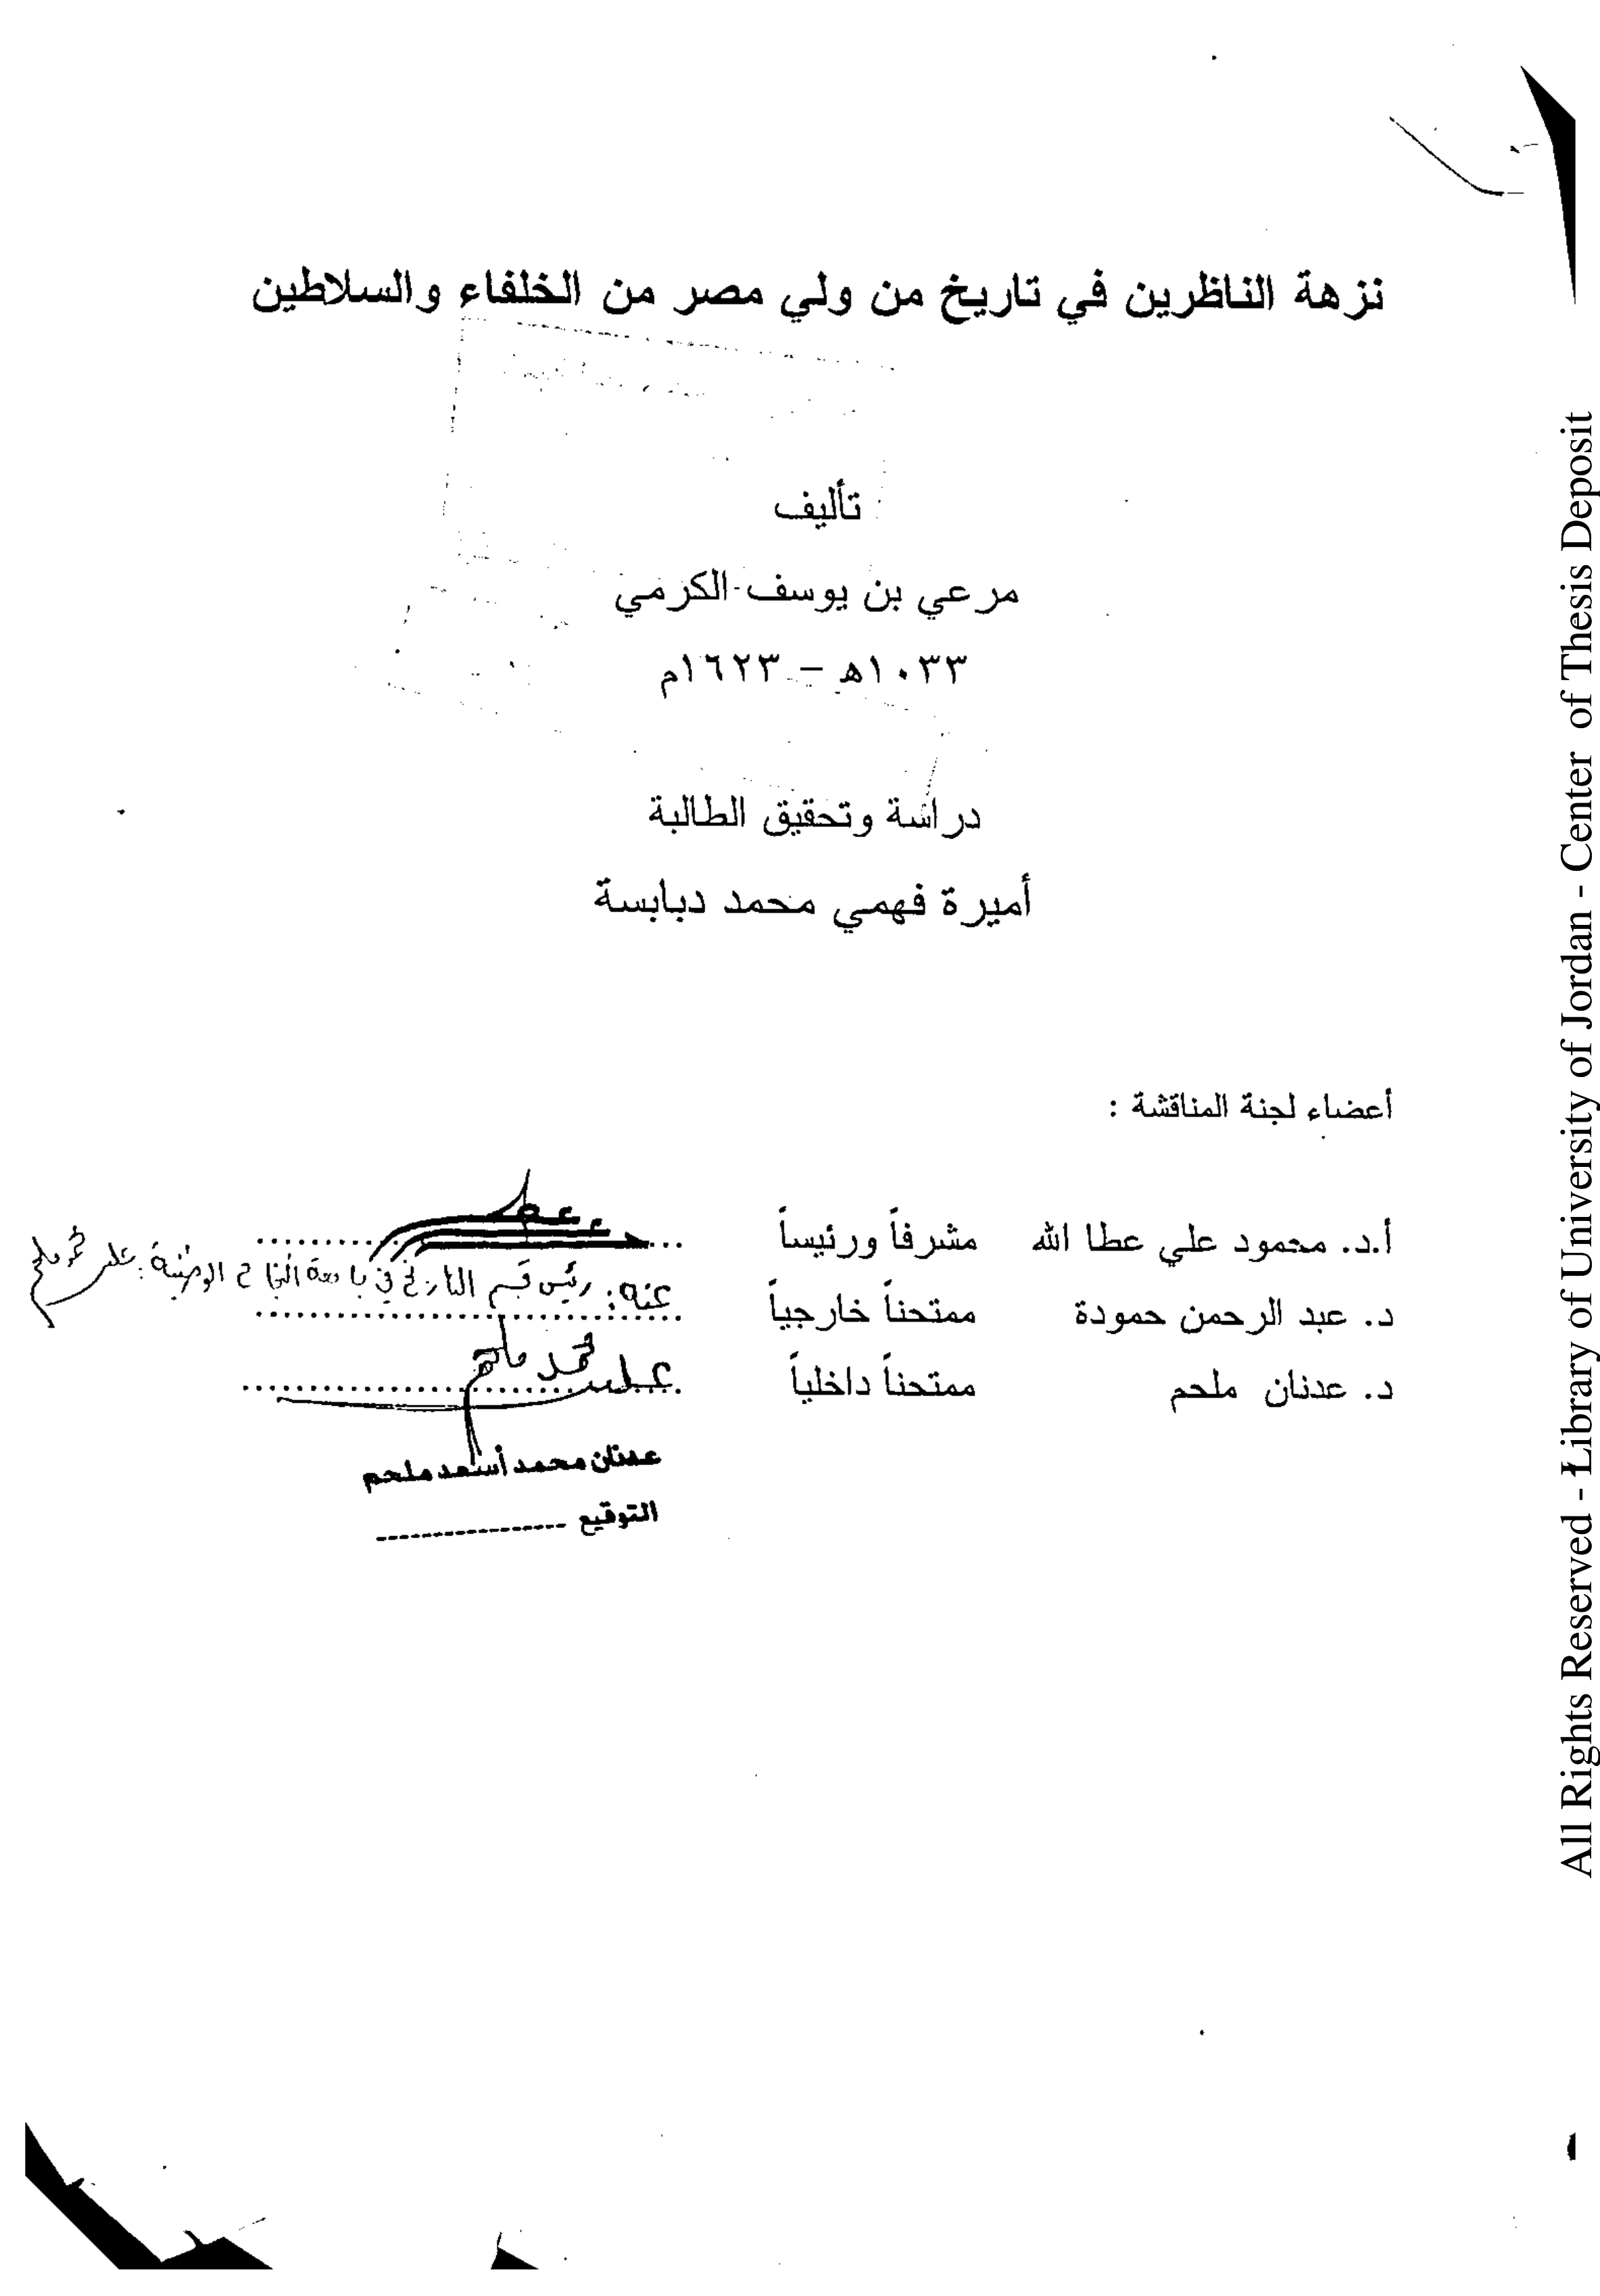 نزهة الناظرين في تاريخ من ولي مصر من الخلفاء والسلاطين
تأليف
مرعي بن يوسف الكرمي
١٠٣٣هـ - ١٦٢٣م
دراسة وتحقيق الطالبة
أميرة فهمي محمد دبابسة
أعضاء لجنة المناقشة :
أ.د. محمود علي عطا الله مشرفاً ورئيساً
د. عبد الرحمن حمودة ممتحناً خارجياً عنه: رئيس قسم التاريخ في جامعة النجاح الوطنية:
د. عدنان ملحم ممتحناً داخلياً
عدنان محمد أسعد ملحم
التوقيع
All Rights Reserved - Library of University of Jordan - Center of Thesis Deposit